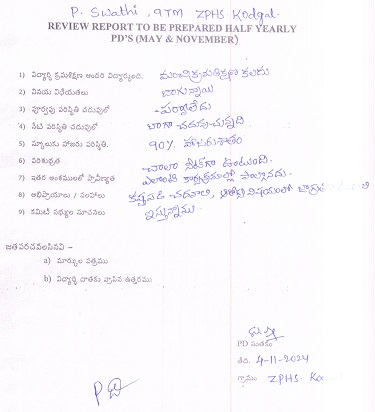 P. Swathi, 9TM ZPHS Kodgal
REVIEW REPORT TO BE PREPARED HALF YEARLY
PD'S (MAY & NOVEMBER)
1) విద్యార్థి క్రమశిక్షణ అందరి విద్యార్థులది. మంచి క్రమశిక్షణ కలదు
2) విషయ విశ్లేషతలు బాగున్నాయి
3) పూర్వపు పరిస్థితి చదువులో - పర్వాలేదు
4) నేటి పరిస్థితి చదువులో బాగా చదువుచున్నది
5) స్కూలుకు హాజరు పరిస్థితి. 90% హాజరుశాతం
6) పరిశుభ్రత చాలా నీట్‌గా ఉంటుంది.
7) ఇతర అంశములలో ప్రావీణ్యత ఎలాంటి కార్యక్రమాల్లో పాల్గొనదు.
8) అభిప్రాయాలు / సలహాలు కష్టపడి చదవాలి, విషయంలో
9) కమిటీ సభ్యుల సూచనలు ఇస్తున్నాము.
జతపరచవలసినవి –
a) మార్కుల పత్రము
b) విద్యార్థి చాతకు వ్రాసిన ఉత్తరము
PD సంతకం
తేది. 4-11-2024
గ్రామం ZPHS.